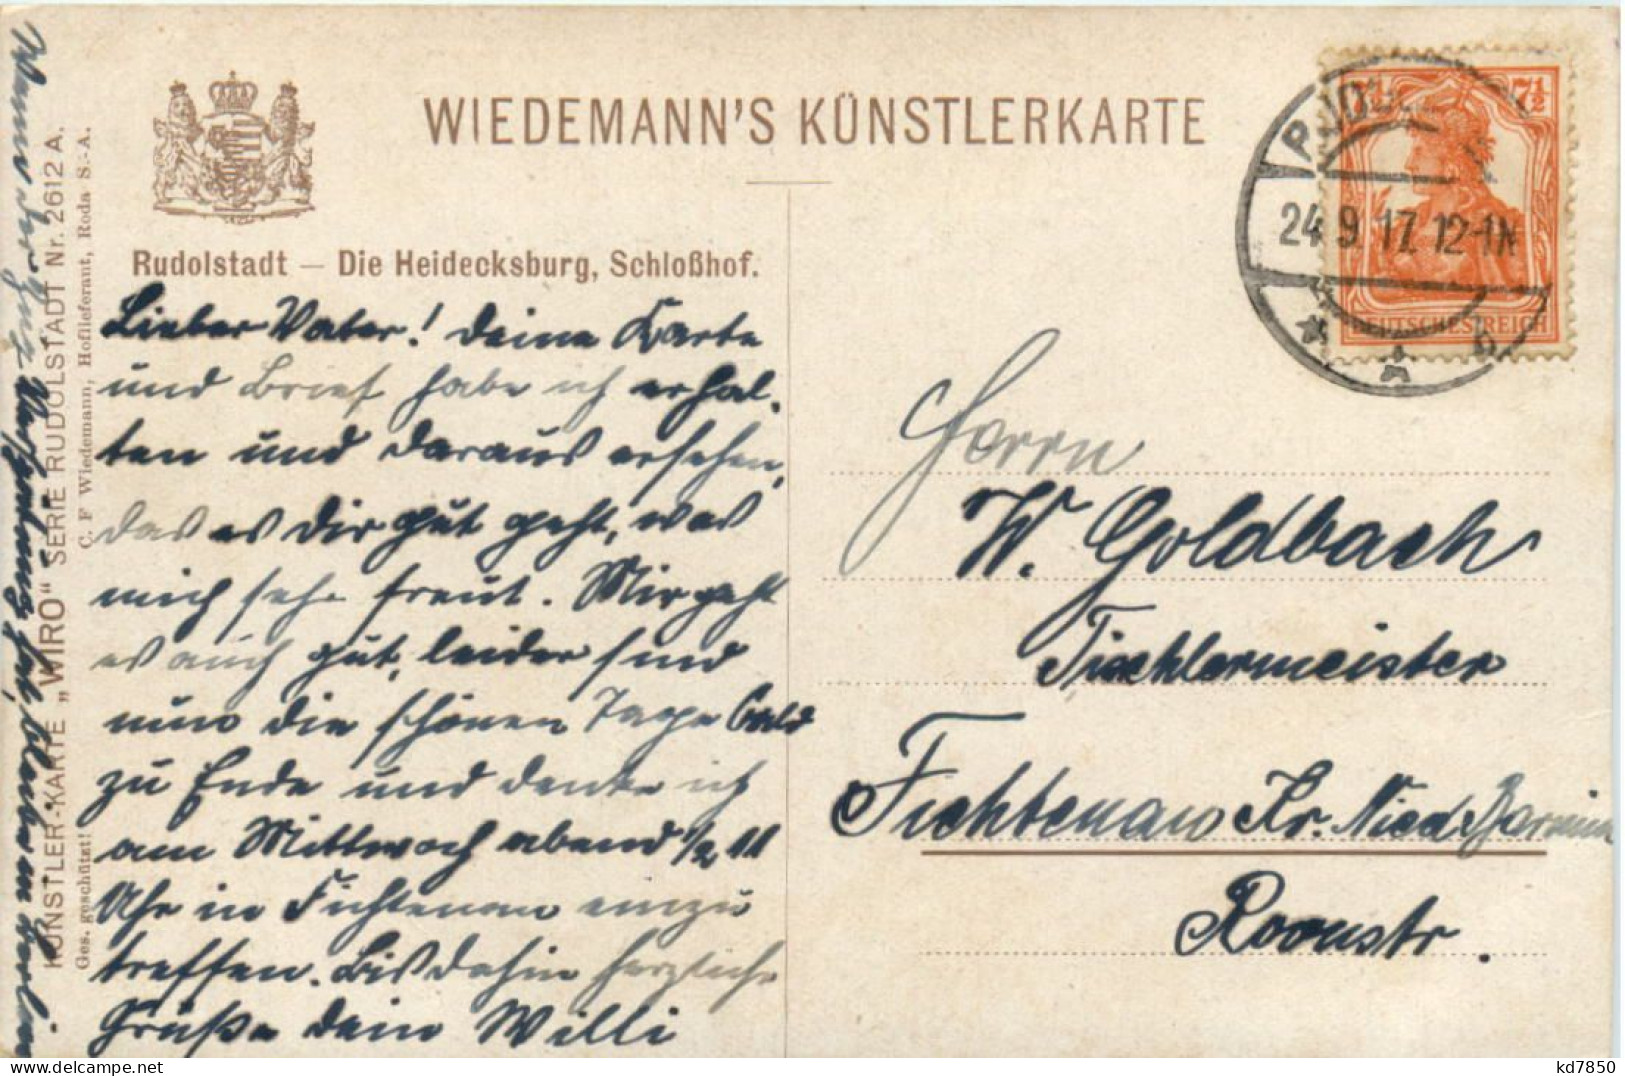 WIEDEMANN'S KÜNSTLERKARTE
Rudolstadt — Die Heidecksburg, Schloßhof.
Lieber Vater! Deine Karte
und Brief habe ich erhal-
ten und daraus ersehen,
das es dir gut geht, was
mich sehr freut. Mir geht
es auch gut, leider sind
nun die schönen Tage bald
zu Ende und denke ich
am Mittwoch abend 1/2 11
Uhr in Fichtenau einzu
treffen. Bis dahin herzliche
Grüße dein Willi
Wenn der Zug Verspätung hat, bleibe in Berlin
KÜNSTLER-KARTE „WIRO" SERIE RUDOLSTADT Nr. 2612 A.
Ges. geschützt! C. F Wiedemann, Hoflieferant, Roda S.-A.
7½
24.9.17. 12-1N
DEUTSCHES REICH
Herrn
W. Goldbach
Tischlermeister
Fichtenau Kr. Nied Barnim
Roonstr.
kd7850